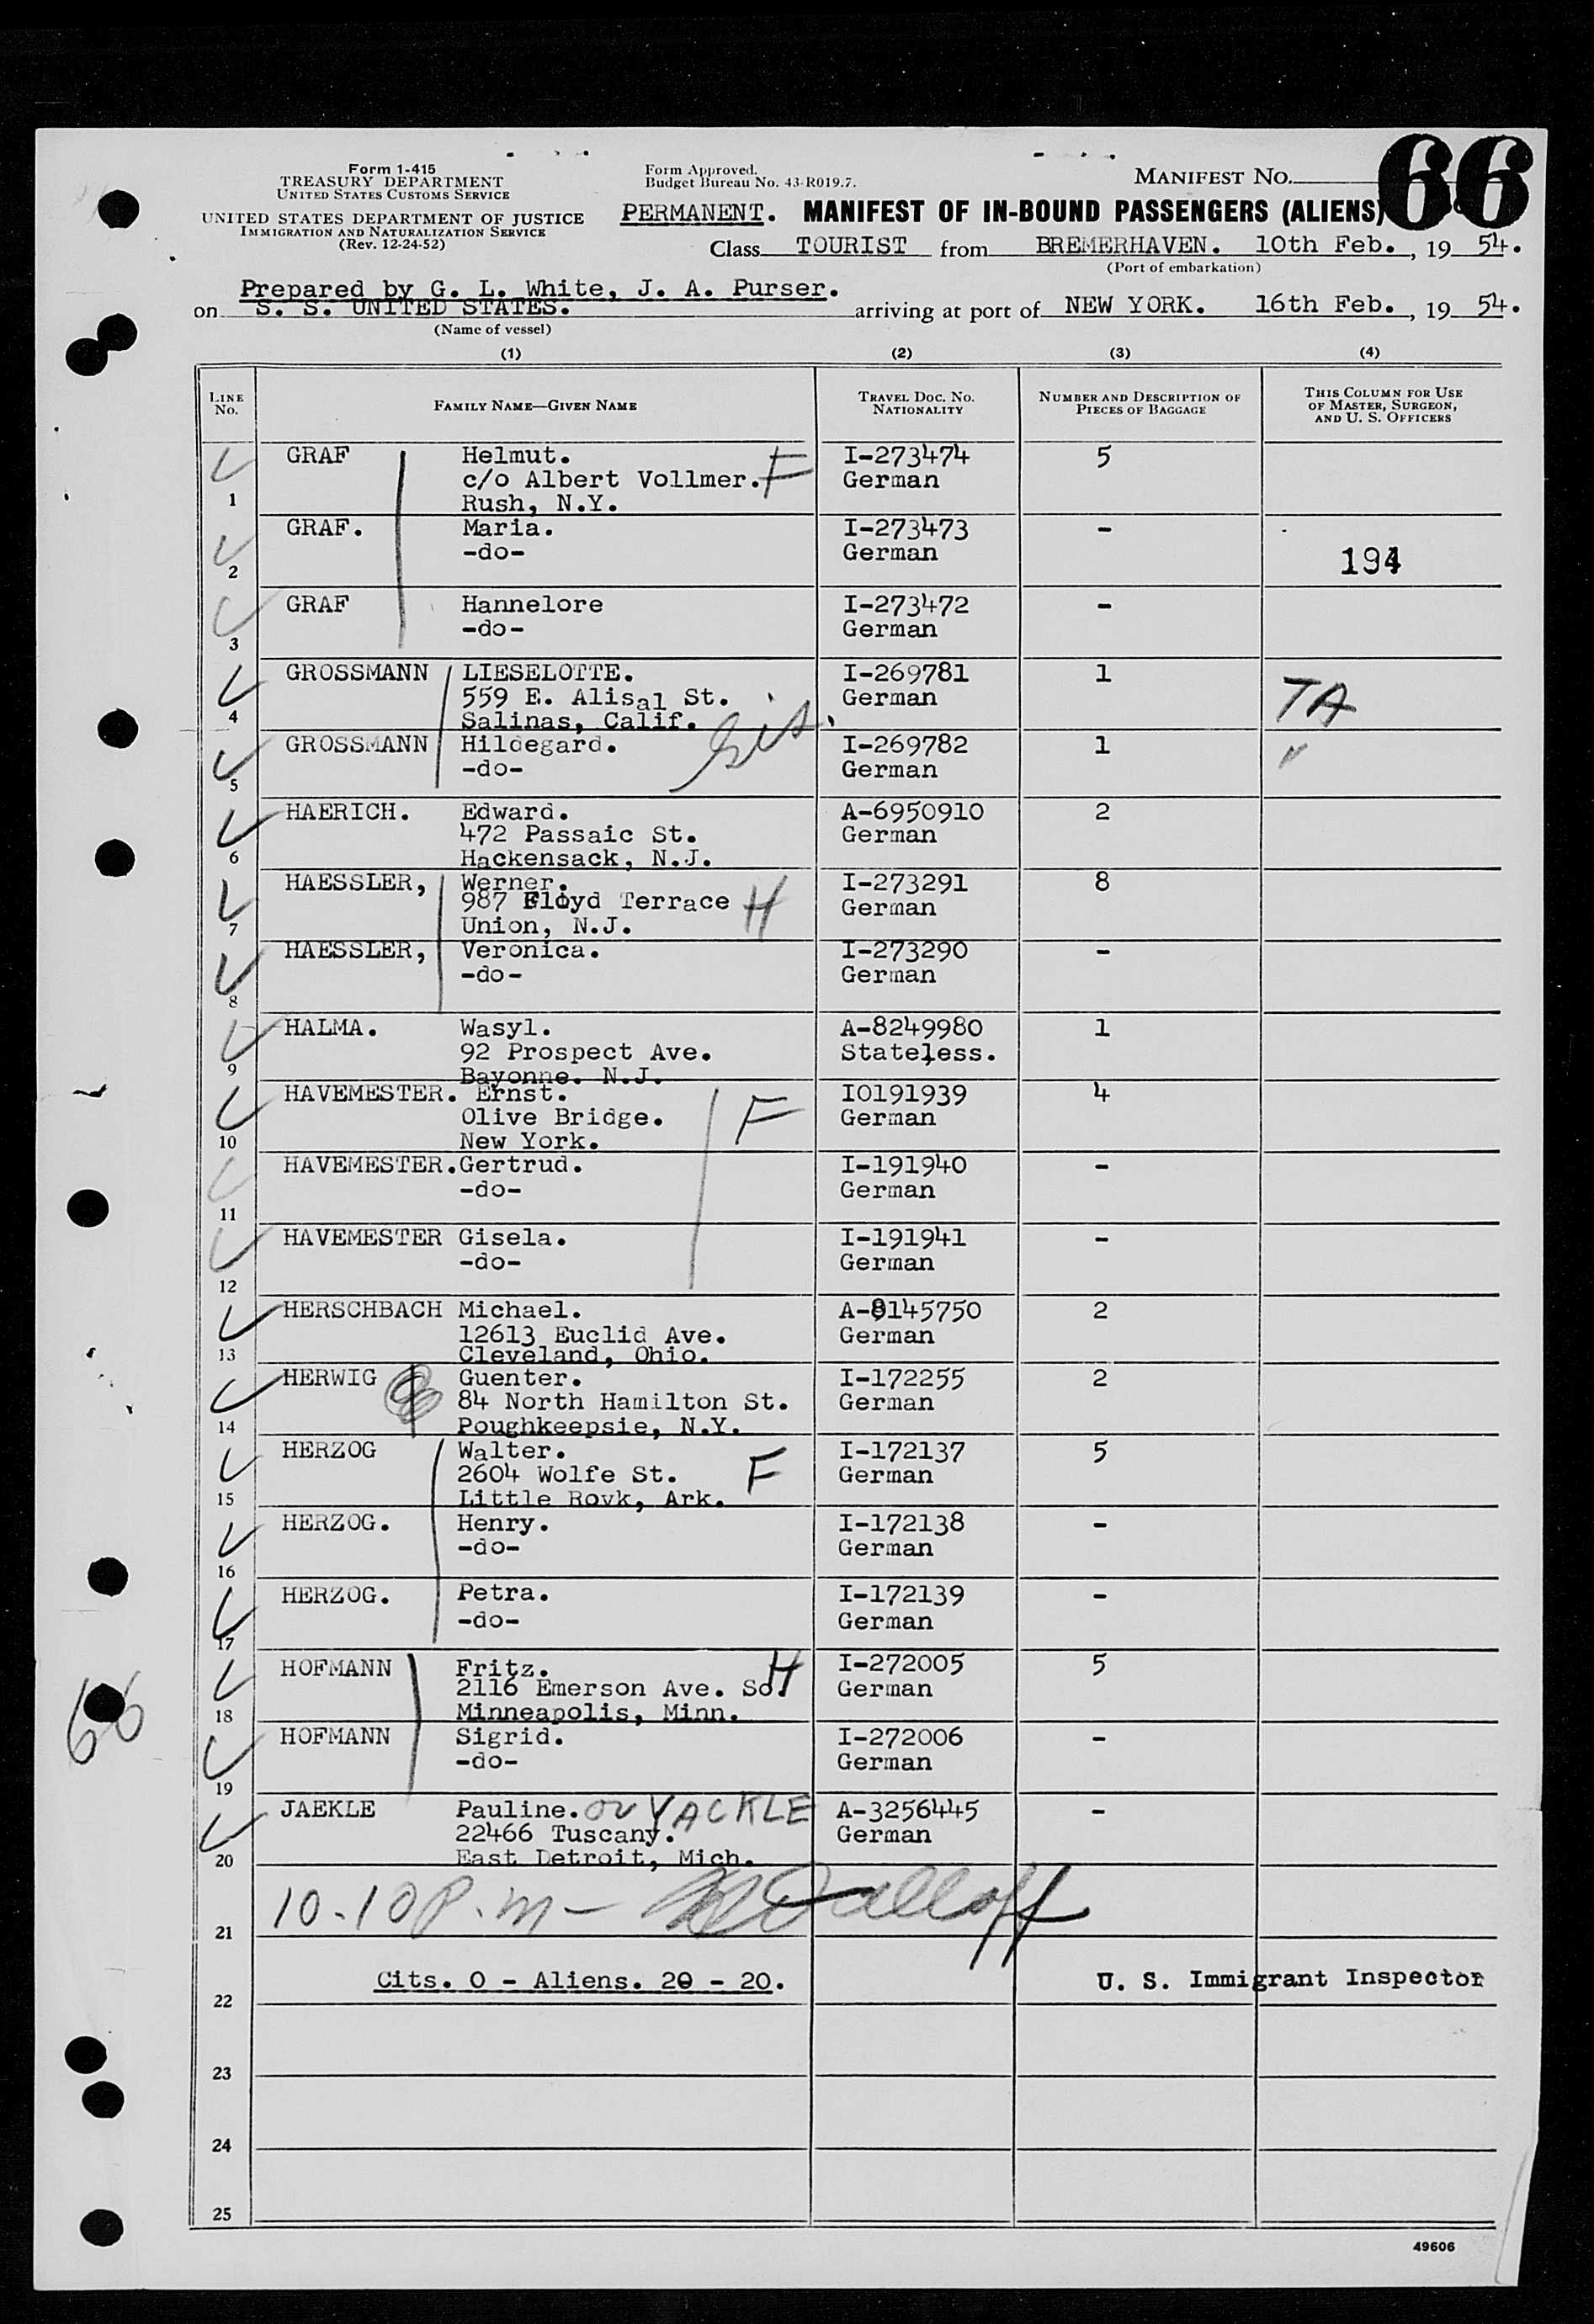 Form 1-415
TREASURY DEPARTMENT
UNITED STATES CUSTOMS SERVICE
UNITED STATES DEPARTMENT OF JUSTICE
IMMIGRATION AND NATURALIZATION SERVICE
(Rev. 12-24-52)
Form Approved.
Budget Bureau No. 43-R019.7.
MANIFEST NO. 66
PERMANENT. MANIFEST OF IN-BOUND PASSENGERS (ALIENS)
Class TOURIST from BREMERHAVEN. 10th Feb., 19 54.
(Port of embarkation)
Prepared by G. L. White, J. A. Purser.
on S. S. UNITED STATES. arriving at port of NEW YORK. 16th Feb., 19 54.
(Name of vessel)
(1) (2) (3) (4)
LINE No. FAMILY NAME—GIVEN NAME TRAVEL DOC. NO. NATIONALITY NUMBER AND DESCRIPTION OF PIECES OF BAGGAGE THIS COLUMN FOR USE OF MASTER, SURGEON, AND U. S. OFFICERS
GRAF Helmut. I-273474 5
c/o Albert Vollmer. F German
1 Rush, N.Y.
GRAF. Maria. I-273473 -
-do- German 194
2
GRAF Hannelore I-273472 -
-do- German
3
GROSSMANN LIESELOTTE. I-269781 1
559 E. Alisal St. German TA
4 Salinas, Calif.
GROSSMANN Hildegard. I-269782 1 "
-do- German
5
HAERICH. Edward. A-6950910 2
472 Passaic St. German
6 Hackensack, N.J.
HAESSLER, Werner. I-273291 8
987 Floyd Terrace H German
7 Union, N.J.
HAESSLER, Veronica. I-273290 -
-do- German
8
HALMA. Wasyl. A-8249980 1
92 Prospect Ave. Stateless.
9 Bayonne. N.J.
HAVEMESTER. Ernst. I0191939 4
Olive Bridge. F German
10 New York.
HAVEMESTER. Gertrud. I-191940 -
-do- German
11
HAVEMESTER Gisela. I-191941 -
-do- German
12
HERSCHBACH Michael. A-8145750 2
12613 Euclid Ave. German
13 Cleveland, Ohio.
HERWIG Guenter. I-172255 2
84 North Hamilton St. German
14 Poughkeepsie, N.Y.
HERZOG Walter. I-172137 5
2604 Wolfe St. F German
15 Little Rovk, Ark.
HERZOG. Henry. I-172138 -
-do- German
16
HERZOG. Petra. I-172139 -
-do- German
17
HOFMANN Fritz. H I-272005 5
2116 Emerson Ave. So. German
18 Minneapolis, Minn.
66
HOFMANN Sigrid. I-272006 -
-do- German
19
JAEKLE Pauline. or YACKLE A-3256445 -
22466 Tuscany. German
20 East Detroit, Mich.
10-10 P.M -
21
Cits. 0 - Aliens. 20 - 20. U. S. Immigrant Inspector
22
23
24
25
49606